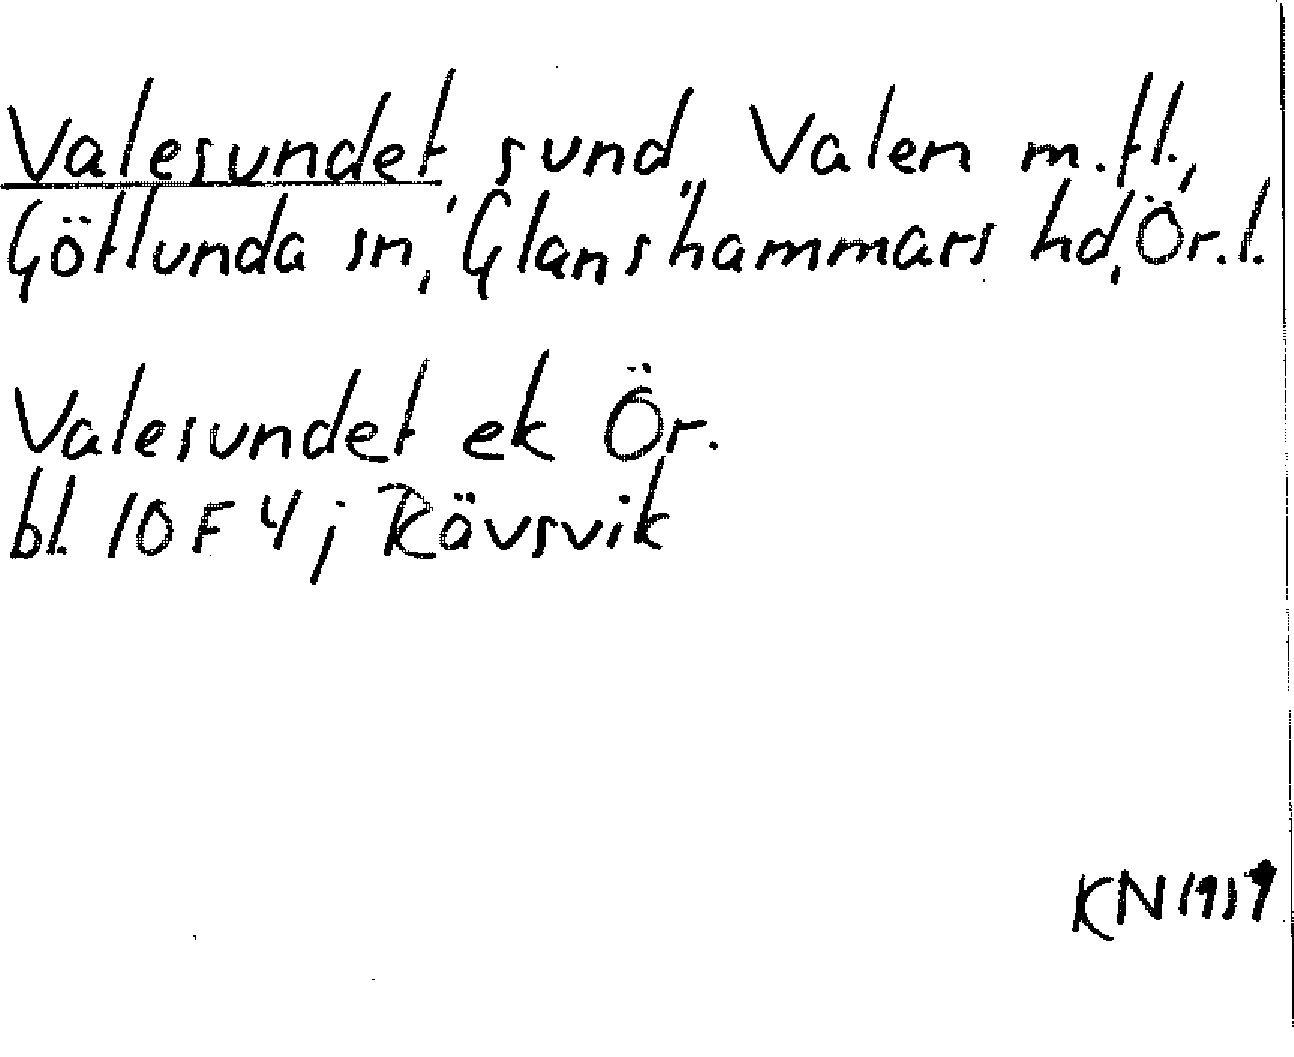 Valesundet, sund, Valen m.fl.,
Götlunda sn, Glanshammars hd, Ör.l.
Valesundet ek Ör.
bl. 10F4; Rävsvik
KN